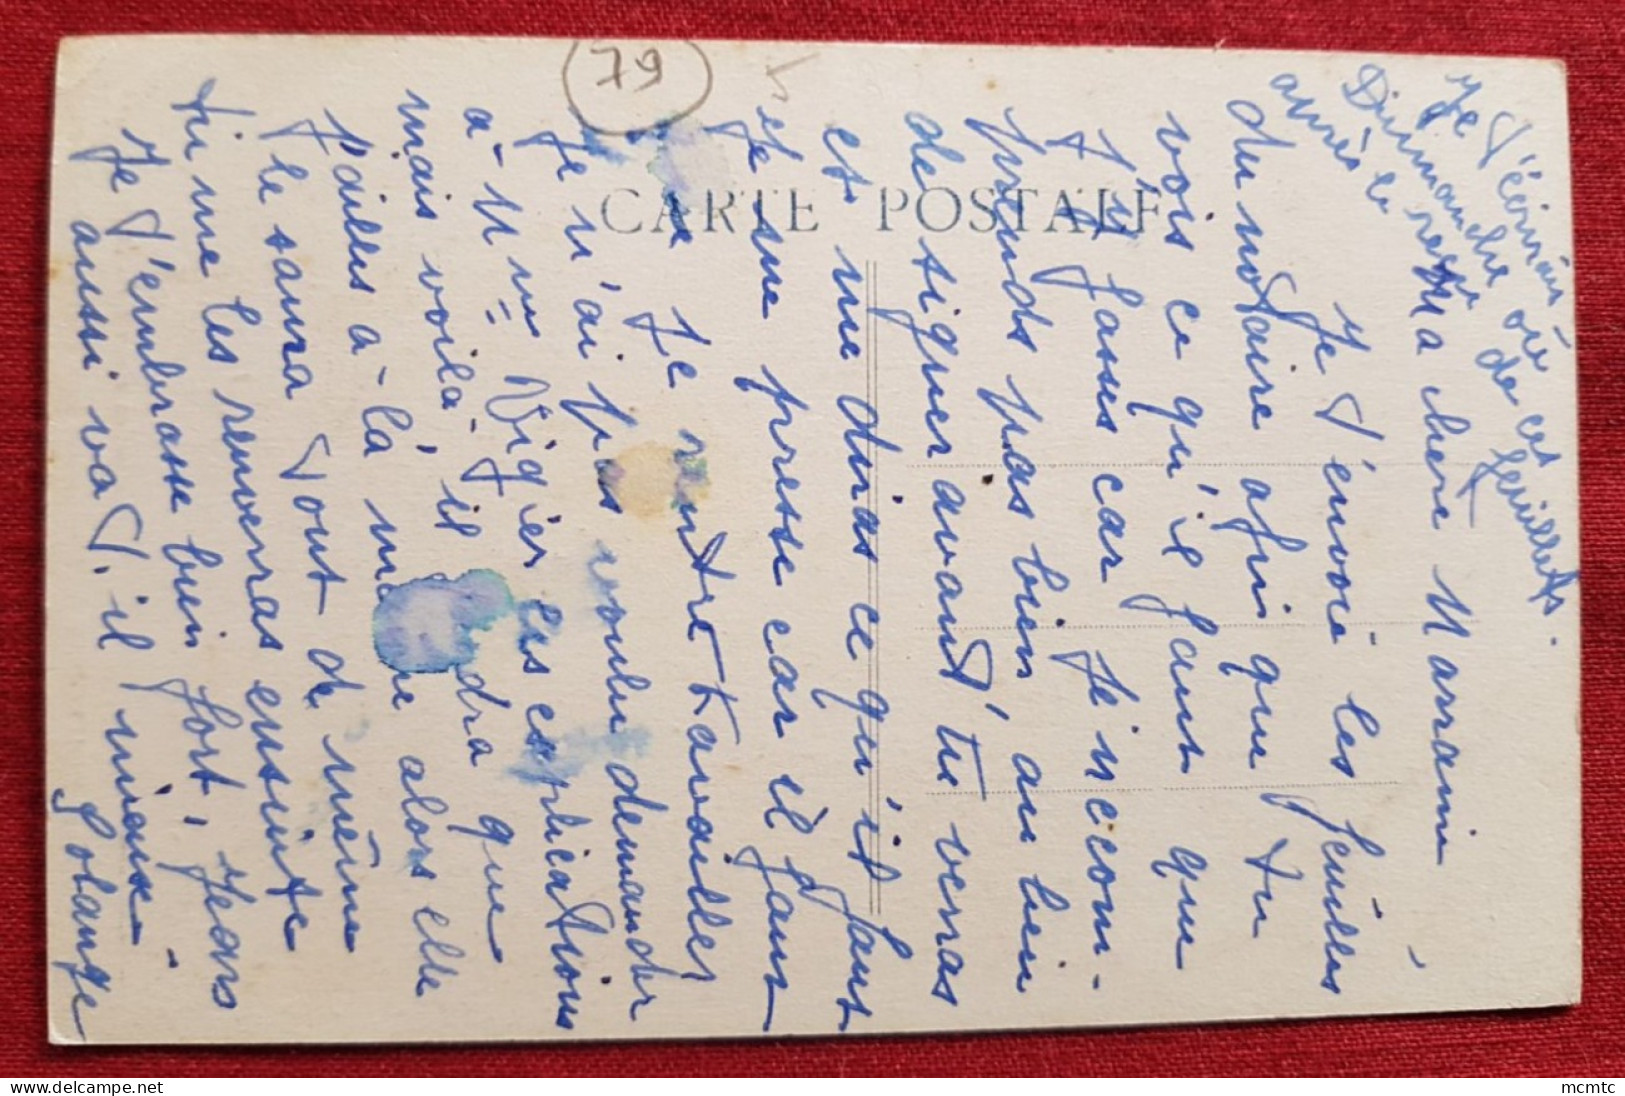 79
CARTE POSTALE
Je t'écrirai
Dimanche où
après le reçu de ces feuillets.
Ma chère Marraine,
Je t'envoie les feuilles
du notaire afin que tu
vois ce qu'il faut que
j'y fasse car je n'com-
prends pas bien, au lieu
de signer avant, tu verras
et me diras ce qu'il faut
Je me presse car il faut
que je rentre travailler
Je n'ai pas voulu demander
à Mme Vigier les explications
mais voilà, il dra que
j'ailles à la même alors elle
le saura tout de même
tu me les renverras ensuite
Je t'embrasse bien fort, Jean
aussi va t-il mieux.
Solange
mcmtc